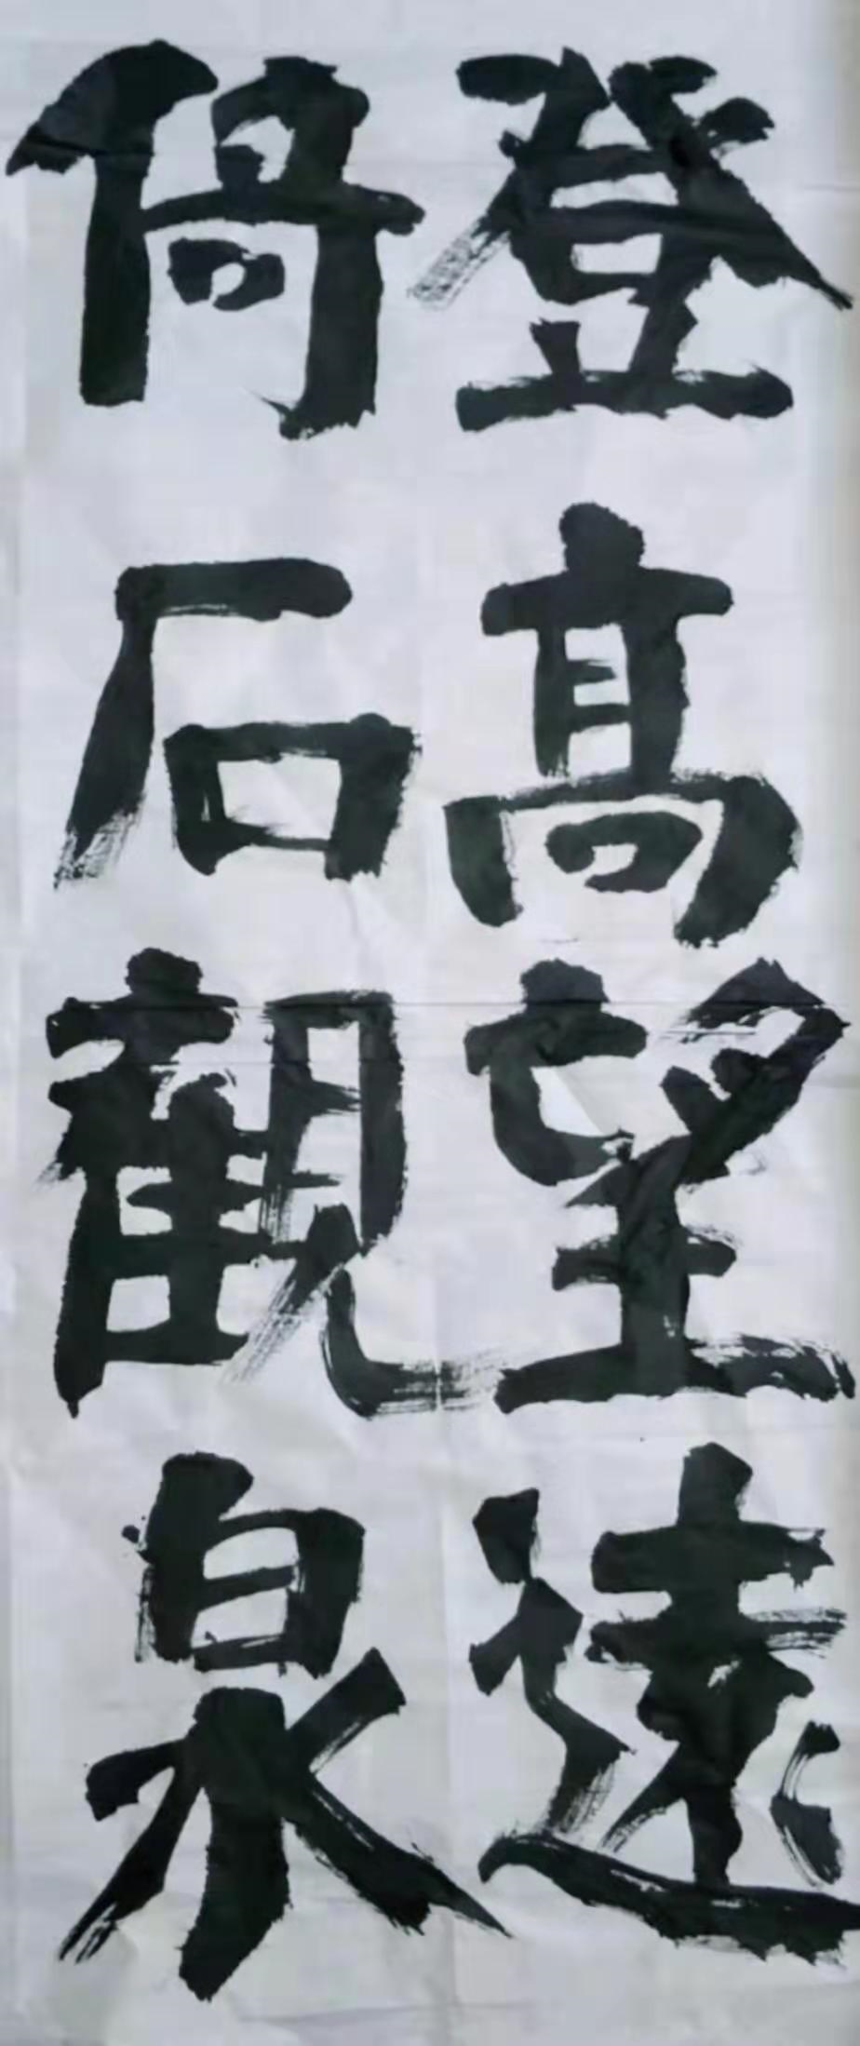 登高望遠
倚石觀泉